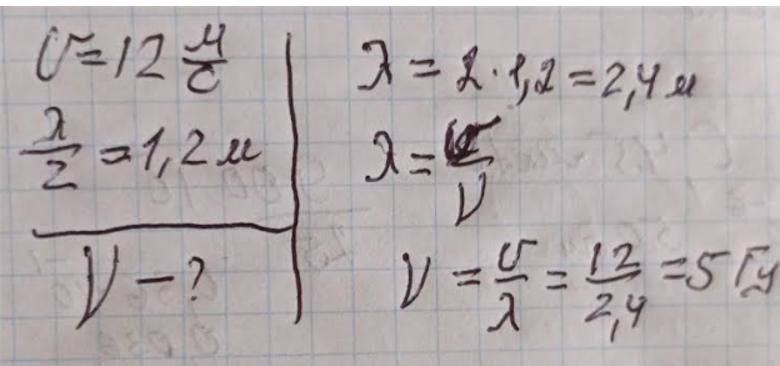 υ = 12 м/с
λ/2 = 1,2 м
ν – ?
λ = 2 · 1,2 = 2,4 м
λ = υ/ν
ν = υ/λ = 12/2,4 = 5 Гц